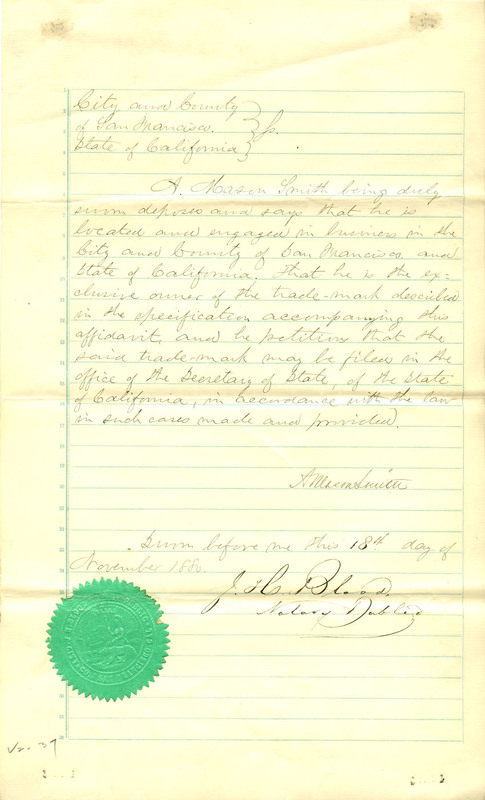 City and County
of San Francisco.
State of California
ss.
A. Mason Smith being duly
sworn deposes and says that he is
located and engaged in business in the
City and County of San Francisco and
State of California. That he is the ex=
clusive owner of the trade-mark described
in the specification accompanying this
affidavit, and he petitions that the
said trade-mark may be filed in the
office of the Secretary of State, of the State
of California, in accordance with the law
in such cases made and provided.
A Mason Smith
Sworn before me this 18th day of
November 1880.
J. H. Blood.
Notary Public